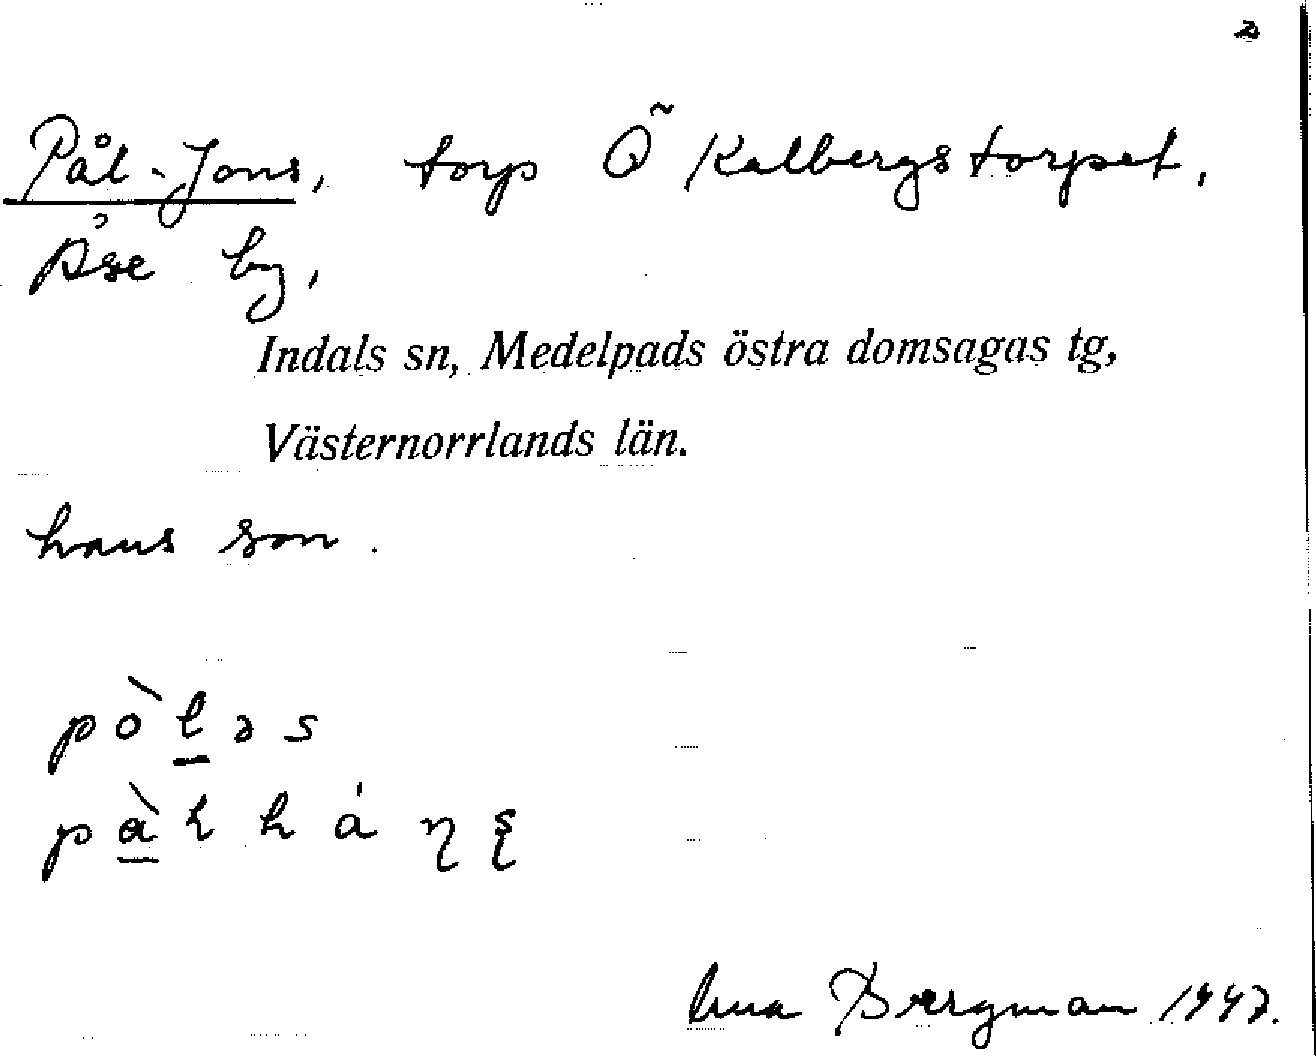 2
Pål-Jons, torp Õ Kalbergstorpet,
Åse by,
Indals sn, Medelpads östra domsagas tg,
Västernorrlands län.
hans son.
pòləs
Bergman